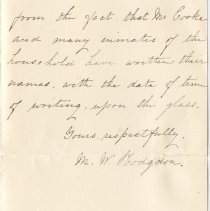 from the fact, that Mr Cooke
and many inmates of the
household have written their
names, with the date of time
of writing, upon the glass.
Yours, respectfully,
M. W. Hodgdon.